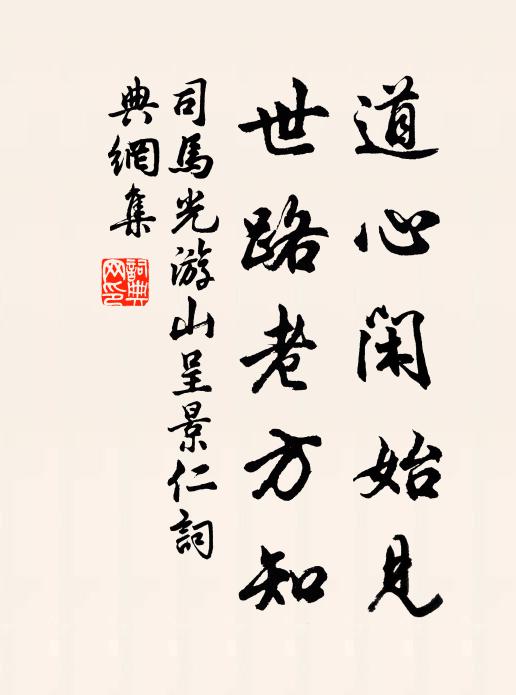 道心閑始見
世路老方知
司馬光游山呈景仁詞
典網集
詞典
网印